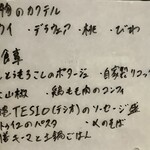 物のカクテル
ウイ ・デラウェア ・桃 ・びわ
食事
とうもろこしのポタージュ ・自家製リコッ
山椒 ・鶏もも肉のコンフィ
TESIO(テシオ)のソーセージ盛
トゥイユのパスタ ・〆のそば
チーズと土鍋ごはん